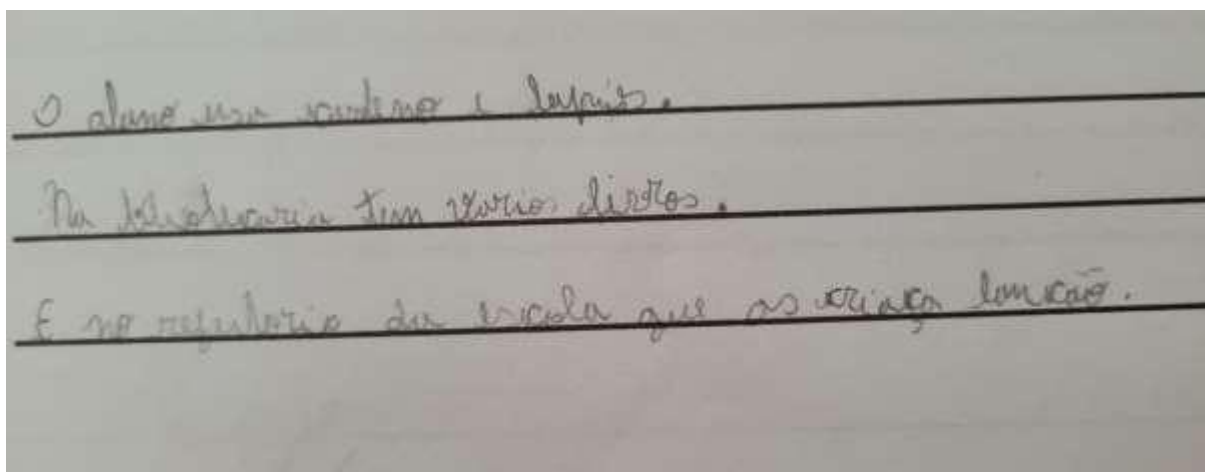 O aluno usa caderno e lapais.
Na tem varios livros.
E no refeitorio da escola que as criaça lancão.